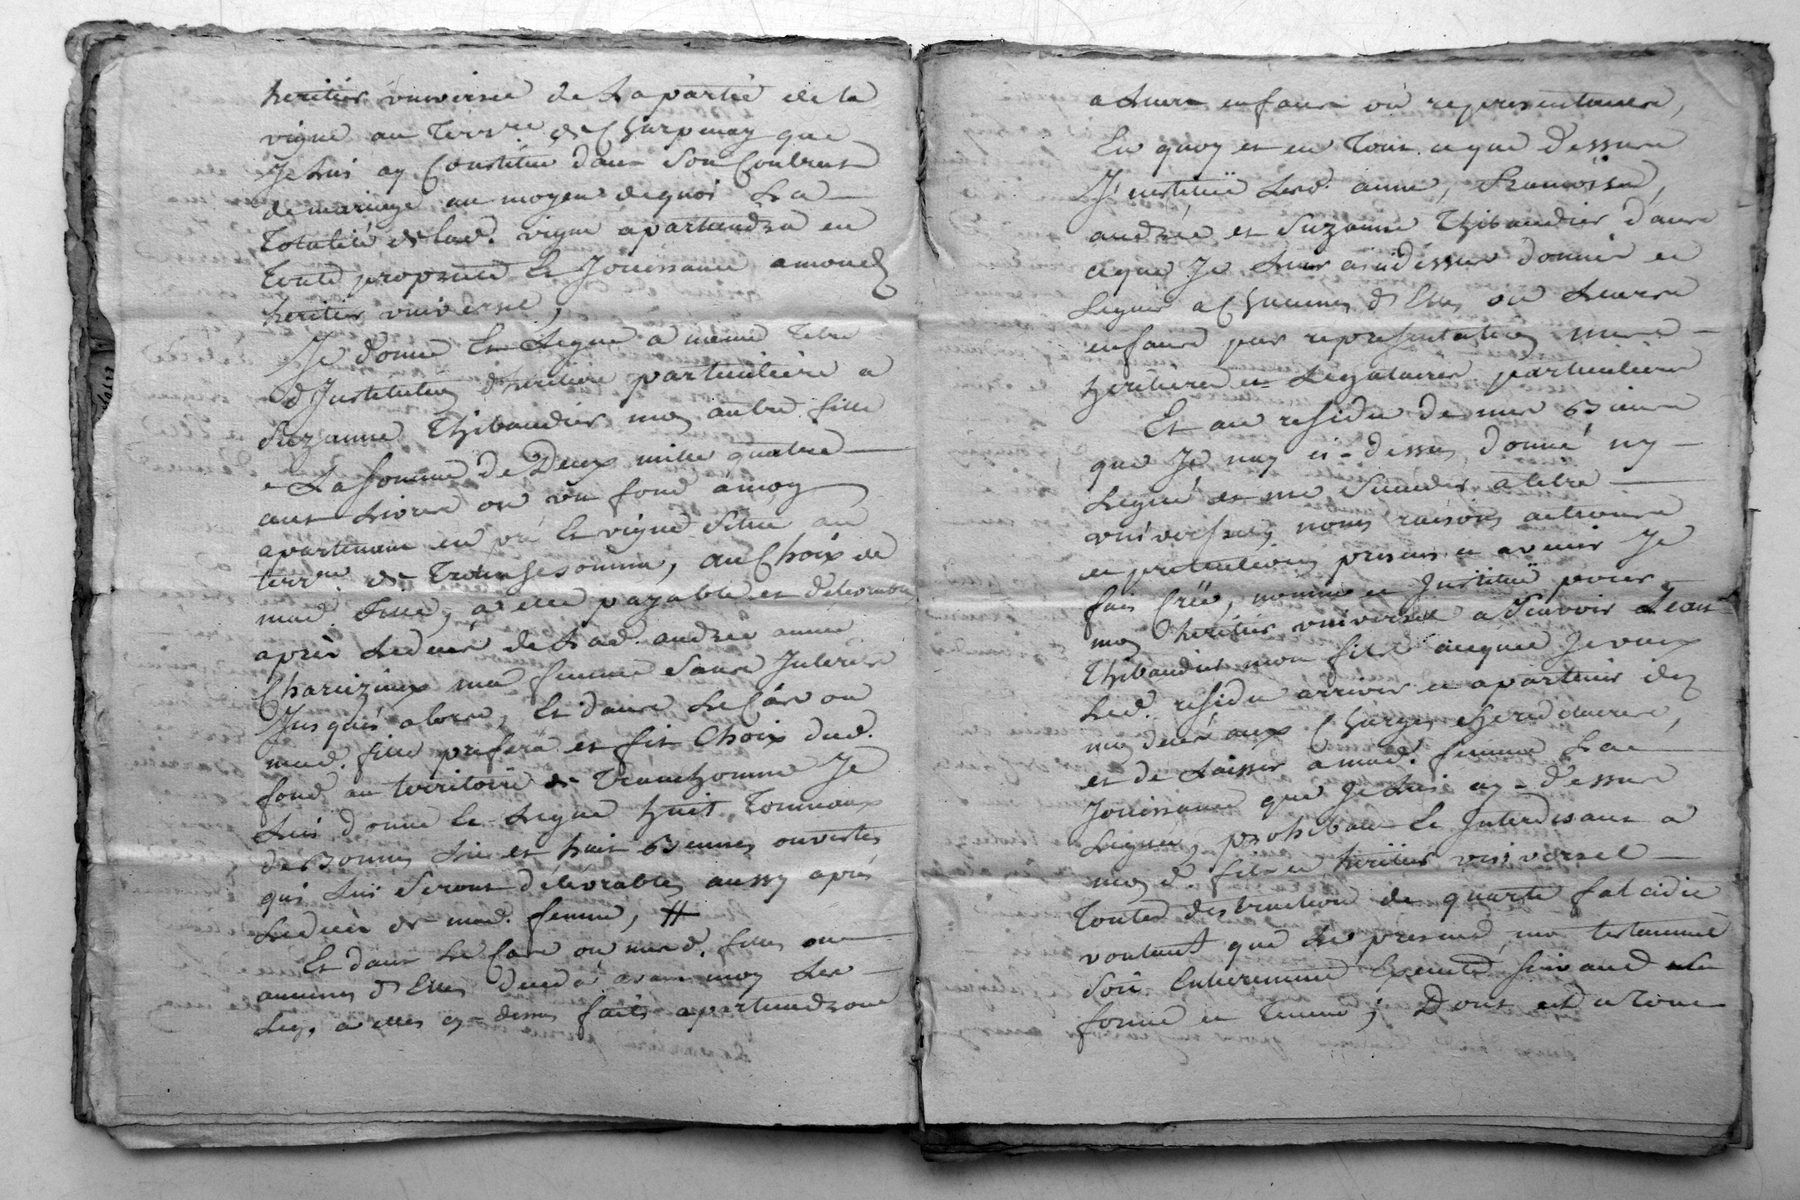 heritier universel de La partie de la
vigne au Terr.re de Charpenay que
Je Luis ay Constitué dans Son Contrat
de mariage au moyen de quoi La
Totalité de lad. vigne apartiendra en
toute proprieté et Jouissance a mond.
heritier universel,
Je donne et Legue a meme titre
d'Institution d'heritiere particuliere a
Suzanne Thibaudier mon autre fille
La Somme de Deux mille quatre
cent Livres ou un fond a moy
apartenant en pré et vigne Situé au
terr.re de, au Choix de
mad. fille, a elle payable et delivrable
après Le decés de Lad. andrée
ma femme Sans Interets
Jusques alors, Et dans Le Cas ou
mad. fille prefera et fit Choix dud.
fond au territoire de Je
Luis donne et Legue huit Tonneaux
de Bonne Lie et huit Bennes ouvertes
qui Luis Seront delivrables aussy après
Le decés de mad. femme, #
Et dans Le Cas ou mesd. filles ou
aucunes d'Elles decedât avant moy Les
Legs a elles cy-dessus faits apartiendront
a Leurs enfants ou representants,
En quoy et en Tout ce que Dessus
J'instituë Lesd. anne, Francoise,
andrée et Suzanne Thibaudier dans
ce que Je Leur ai cy dessus donné et
Legué a Chacunes d'Elles ou Leurs
enfants par representation mes
heritieres et Legataires particulieres
Et au residu de mes Biens
que Je n'ay ci-dessus donné ny
Legué et me Succeder a titre
universel, noms raisons actions
et pretentions presents et avenir Je
fais Créé, nomme et Instituë pour
mon heritier universel a Scavoir Jean
Thibaudier mon fils auquel Je veux
Led. residu arriver et apartenir dez
mon decés aux Charges hereditaires,
et de Laisser a mad. femme La
Jouissance que Je Luis ay-dessus
Leguée, prohibant et Interdisant a
mond. fils et heritier universel
Toutes destraction de quarte falcidie
voulant que Le present mon testament
Soit Entierement Executé Suivant sa
forme et Teneur; Dont et du Tout